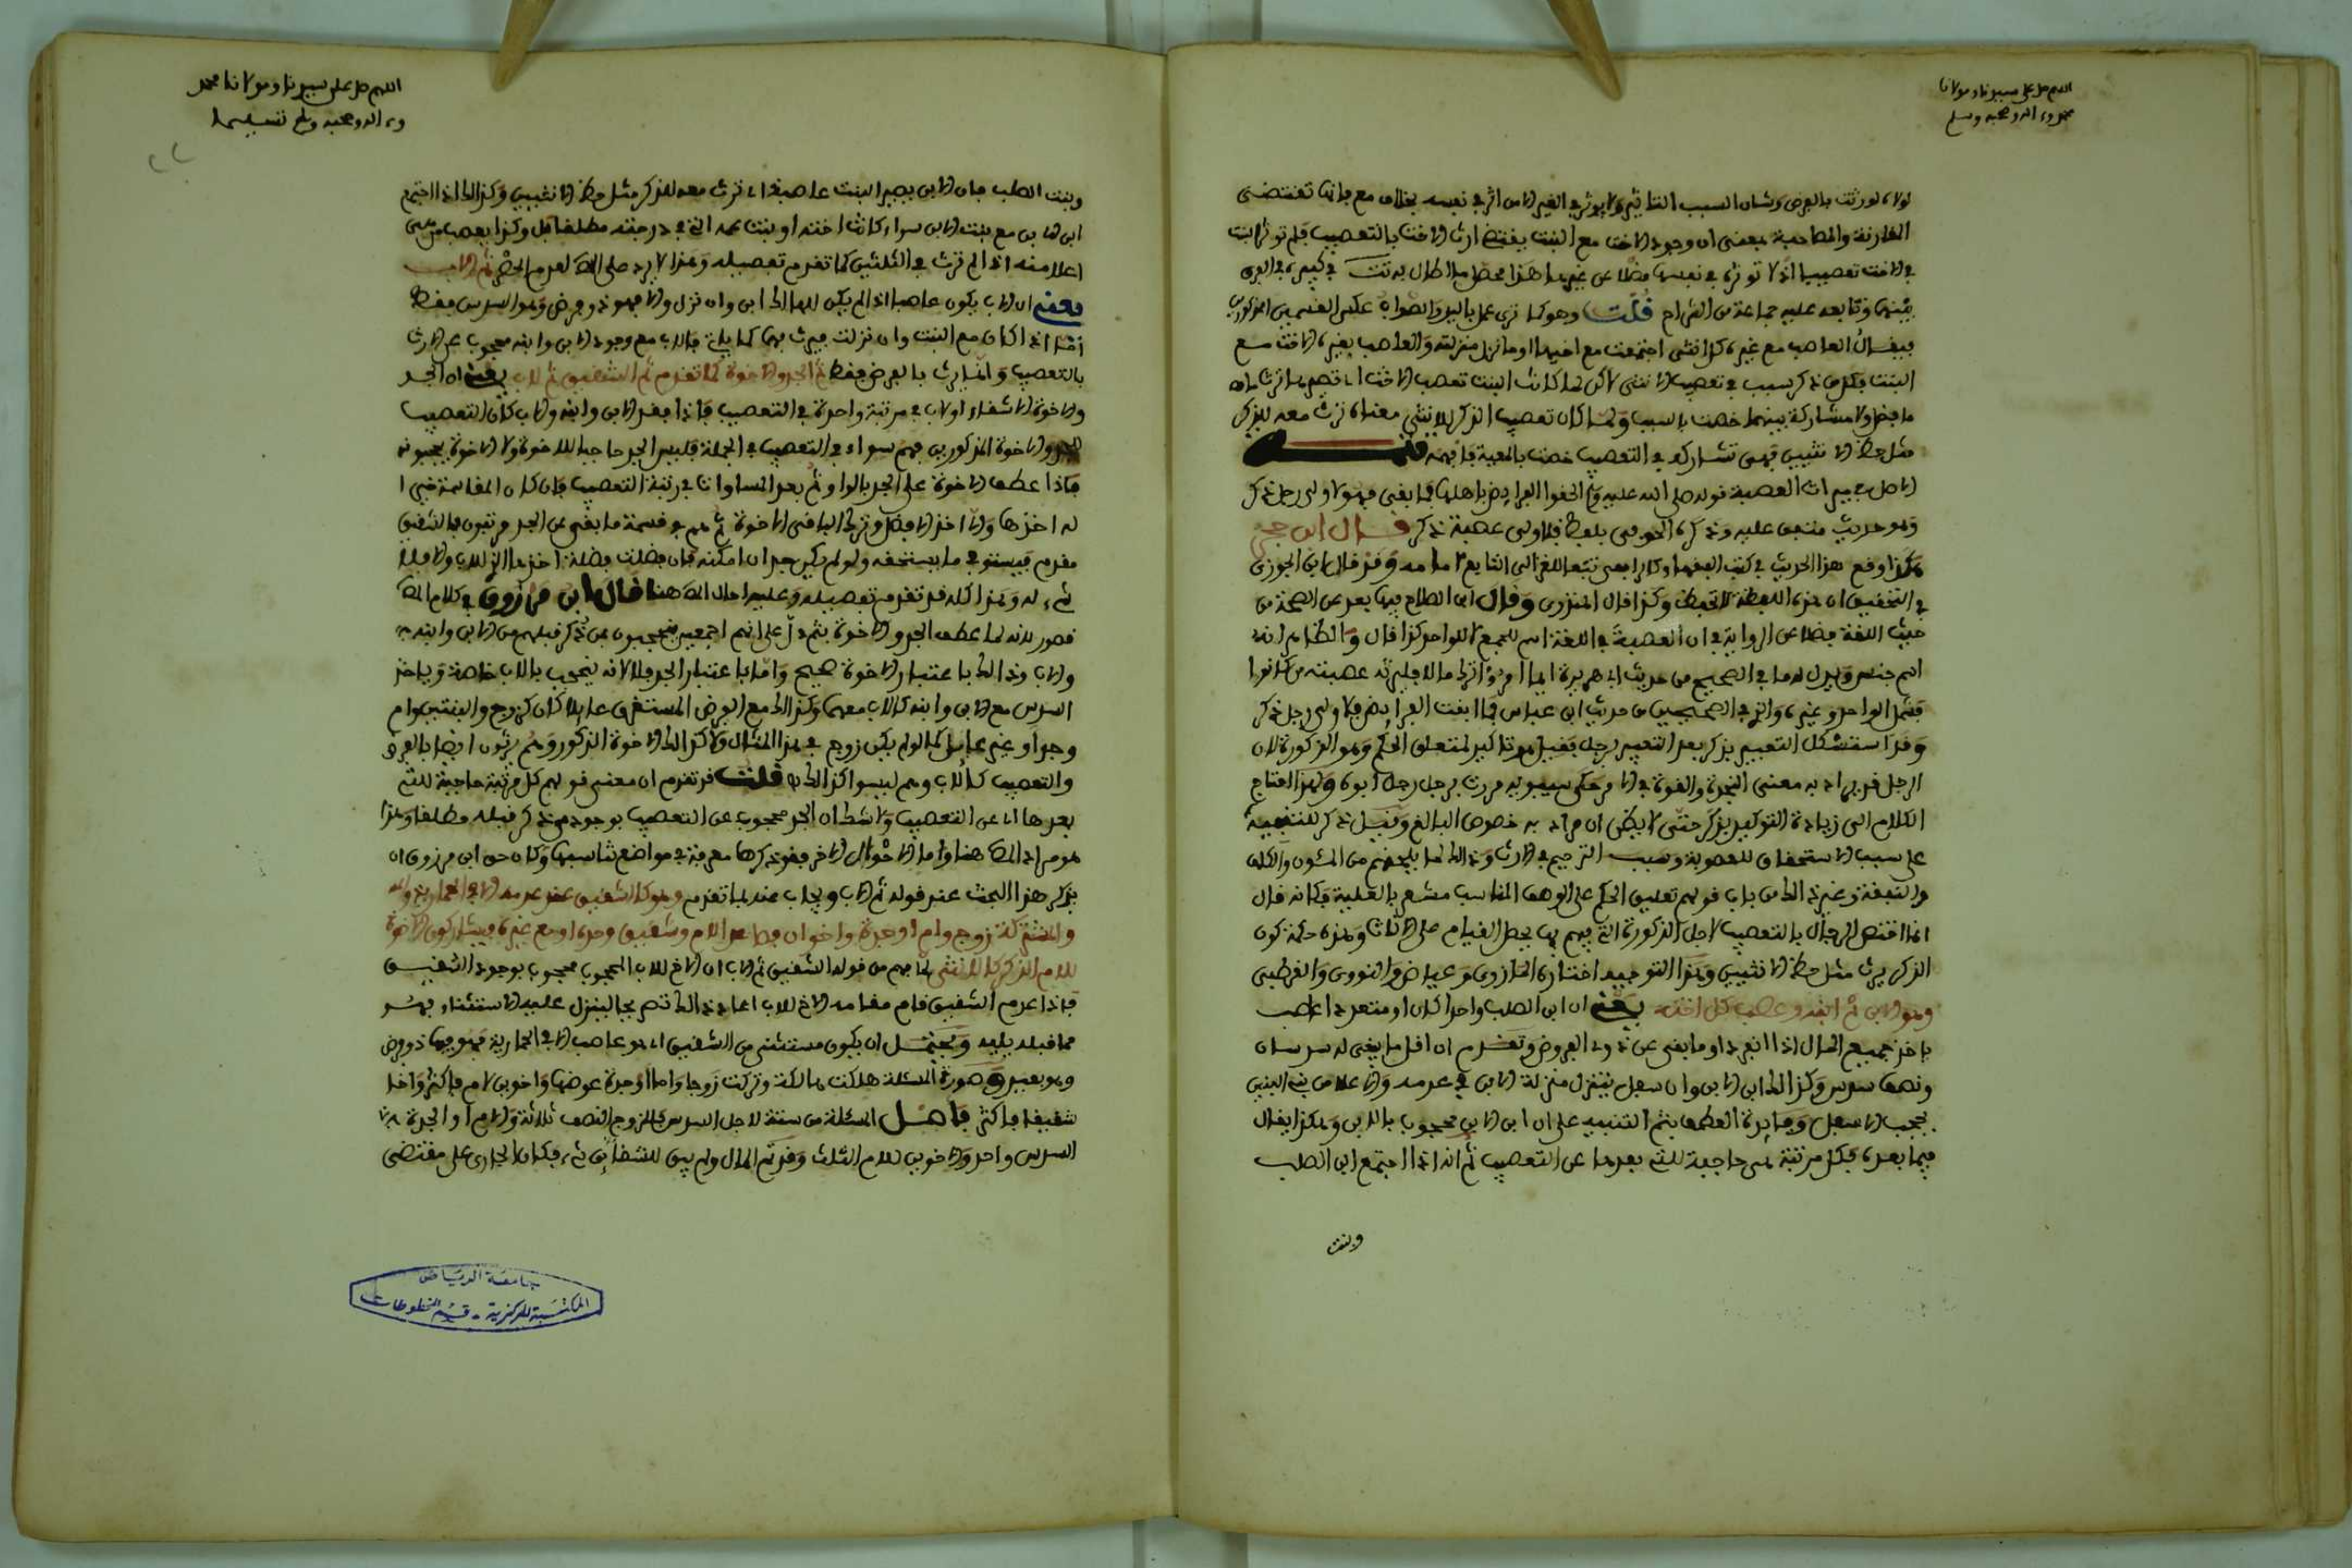 اللهم صل على سيدنا ومولانا
محمد وءاله وصحبه وسلم
لولاه لورثت بالفرض وشان السبب التاثير ولا يوثر في الغير الا من اثر في نفسه بخلاف مع فانها تقتضي
المقارنة والمصاحبة بمعنى ان وجود الاخت مع البنت يقتضي ارث الاخت بالتعصيب فلم توثر البنت
في الاخت تعصيبا اذ لا توثره في نفسها فضلا عن غيرها هذا محصل ما اطال به تت في كبيره في الفرق
بينهما وتابعه عليه جماعة من الشراح قلت وهو كما ترى عمل باليد والصواب عكس القسمين المذكورين
فيقال العاصب مع غيره كل انثى اجتمعت مع اخيها او ما نزل منزلته والعاصب بغيره الاخت مع
البنت فكل من ذكر سبب في تعصيب الانثى لاكن لما كانت البنت تعصب الاخت اي تصيرها ترث
ما فضل ولا مشاركة بينهما خصت بالسبب ولما كان تعصيب الذكر للانثى معناه ترث معه للذكر
مثل حظ الانثيين فهي تشاركه في التعصيب خصت بالمعية فافهمه
الاصل في ميراث العصبة قوله صلى الله عليه وسلم الحقوا الفرايض باهلها فما بقي فهو لاولى رجل ذكر
وهو حديث متفق عليه وذكره الحوفي بلفظ فلاولى عصبة ذكر قال ابن حجر
هكذا وقع هذا الحديث في كتب الفقهاء وكالرافعي تبعا للغزالي التابع لامامه وقد قال ابن الجوزي
في التحقيق ان هذه اللفظة لا تحفظ وكذا قال المنذري وقال ابن الصلاح فيها بعد عن الصحة من
حيث اللغة فضلا عن الرواية فان العصبة في اللغة اسم للجمع لا للواحد كذا قال والظاهر انه
اسم جنس ويدل له ما في الصحيح من حديث ابي هريرة ايما امرئ ترك مالا فليرثه عصبته من كانوا
فشمل الواحد وغيره والذي في الصحيحين من حديث ابن عباس فما ابقت الفرايض فلاولى رجل ذكر
وقد استشكل التعبير بذكر بعد التعبير برجل فقيل هو تاكيد لمتعلق الحكم وهو الذكورة لان
الرجل قد يراد به معنى النجدة والقوة في الامر حكى سيبويه مررت برجل رجل ابوه ولهذا احتاج
الكلام الى زيادة التوكيد بذكر حتى لا يظن ان مراده به خصوص البالغ وقيل ذكر للتنبيه
على سبب الاستحقاق للعصوبة وسبب الترجيح في الارث وذالك لما يلحقهم من المئون والكلف
والنفقة وغير ذالك من باب قولهم تعليق الحكم على الوصف المناسب مشعر بالعلية فكانه قال
انما اختص الرجال بالتعصيب لاجل الذكورة التي فيهم بها يحصل القيام على الاناث وهذه حكمة كون
الذكر يرث مثل حظ الانثيين وهذا التوجيه اختاره المازري وعياض والنووي والقرطبي
وهو الابن ثم ابنه وعصب كل اخته يعني ان ابن الصلب واحدا كان او متعددا عاصب
ياخذ جميع المال اذا انفرد او ما بقي عن ذوي الفروض وتقدم ان اقل ما يبقى له سدسان
ونصف سدس وكذالك ابن الابن وان سفل يتنزل منزلة الابن في عدمه والاعلا من بني البنين
يحجب الاسفل وفايدة العطف بثم التنبيه على ان ابن الابن محجوب بالابن وهكذا يقال
فيما بعده فكل مرتبة هي حاجبة للتي بعدها عن التعصيب ثم انه اذا اجتمع ابن الصلب
وبنت
اللهم صل على سيدنا ومولانا محمد
وءاله وصحبه وسلم تسليما
وبنت الصلب فان الابن يصير البنت عاصبة اي ترث معه للذكر مثل حظ الانثيين وكذالك اذا اجتمع
ابن الابن مع بنت الابن سواء كانت اخته او بنت عمه التي في درجته مطلقا بل وكذا يعصب من هي
اعلا منه اذا لم ترث في الثلثين كما تقدم تفصيله وهذا لا يرد على المص لعدم الحصر ثم الاب
يعني ان الاب يكون عاصبا اذا لم يكن للهالك ابن وان نزل والا فهو ذو فرض وهو السدس فقط
اما اذا كان مع البنت وان نزلت فيرث بهما كما ياتي فالاب مع وجود الابن وابنه محجوب عن الارث
بالتعصيب وانما يرث بالفرض فقط ثم الجد والاخوة كما تقدم ثم الشقيق ثم للاب يعني ان الجد
والاخوة الاشقاء او لاب في مرتبة واحدة في التعصيب فاذا فقد الابن وابنه والاب كان التعصيب
للجد والاخوة المذكورين فهم سواء في التعصيب في الجملة فليس الجد حاجبا للاخوة ولا الاخوة يحجبونه
فلذا عطف الاخوة على الجد بالواو ثم بعد المساواة في رتبة التعصيب فان كان المقاسمة خيرا
له اخذها والا اخذ الافضل وترك الباقي الاخوة ثم هم في قسمة ما بقي عن الجد مرتبون فالشقيق
مقدم فيستوفي ما يستحقه ولو لم يكن جد ان امكنه فان فضلت فضلة اخذها الذي للاب والا فلا
شيء له وهذا كله قد تقدم تفصيله وعليه احال المص هنا قال ابن مرزوق في كلام المص
قصور لانه لما عطف الجد والاخوة بثم دل على انهم اجمعين محجوبون بمن ذكر قبلهم من الابن وابنه
والاب وذالك باعتبار الاخوة صحيح واما باعتبار الجد فلا لانه يحجب بالاب خاصة وياخذ
السدس مع الابن وابنه كالاب معهما وكذالك مع الفرض المستغرق عايلا كان كزوج وابنتين وام
وجد او غير عايل كما لو لم يكن زوج في هذا المثال ولا كذالك الاخوة الذكور وهم يرثون ايضا بالفرض
والتعصيب كالاب وهم ليسوا كذالك قلت قد تقدم ان معنى قولهم كل مرتبة حاجبة للتي
بعدها اي عن التعصيب ولا شك ان الجد محجوب عن التعصيب بوجود من ذكر قبله مطلقا وهذا
هو مراد المص هنا واما الاحوال الاخر فقد ذكرها مفرقة في مواضع تناسبها وكان حق ابن مرزوق ان
يذكر هذا البحث عند قوله ثم الاب ويجاب عنه بما تقدم وهو كالشقيق عند عدمه الا في الحمارية
والمشتركة زوج وام او جدة واخوان فصاعدا لام وشقيق وحده او مع غيره فيشاركون الاخوة
للام الذكر كالانثى لما فهم من قوله الشقيق ثم للاب ان الاخ للاب المحجوب محجوب بوجود الشقيق
فاذا عدم الشقيق قام مقامه الاخ للاب اعاد ذالك تصريحا لينزل عليه الاستثناء فهو
مما قبله يليه ويحتمل ان يكون مستثنى من الشقيق اي هو عاصب الا في الحمارية فهو فيها ذو فرض
وهو بعيد وصورة المسئلة هلكت هالكة وتركت زوجا واما او جدة عوضها واخوين لام فاكثر واخا
شقيقا فاكثر فاصل المسئلة من ستة لاجل السدس فللزوج النصف ثلاثة وللام او الجدة
السدس واحد وللاخوين للام الثلث وقد تم المال ولم يبق للشقايق شيء فكان الجاري على مقتضى
جامعة الرياض
المكتبة المركزية - قسم المخطوطات